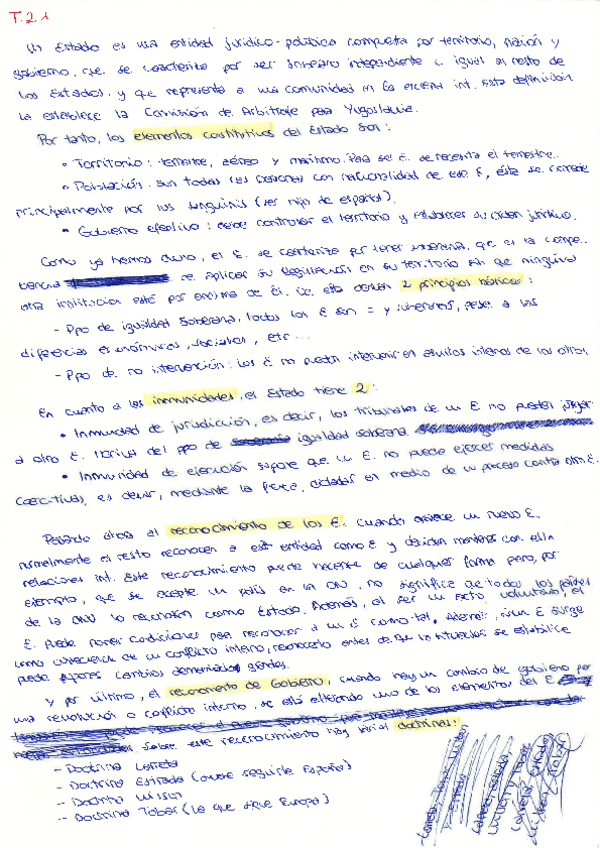 T.2.1
Un Estado es una entidad jurídico-política compuesta por territorio, población y
gobierno, que se caracteriza por ser soberano independiente e igual al resto de
los Estados, y que representa a una comunidad en la escena int. Esta definición
la establece la Comisión de Arbitraje para Yugoslavia.
Por tanto, los elementos constitutivos del Estado son:
• Territorio: terrestre, aéreo y marítimo. Para ser E. se necesita el terrestre.
• Población: son todas las personas con nacionalidad de ese E, ésta se concede
principalmente por ius sanguinis (ser hijo de español).
• Gobierno efectivo: debe controlar el territorio y establecer su orden jurídico.
Como ya hemos dicho, el E. se caracteriza por tener soberanía, que es la compe-
tencia de aplicar su legislación en su territorio sin que ninguna
otra institución esté por encima de él. De esta derivan 2 principios básicos:
- Ppo de igualdad soberana, todos los E son = y soberanos, pese a las
diferencias económicas, sociales, etc...
- Ppo de no intervención: los E no pueden intervenir en asuntos internos de los otros.
En cuanto a las inmunidades, el Estado tiene 2:
• Inmunidad de jurisdicción, es decir, los tribunales de un E no pueden juzgar
a otro E. Deriva del ppo de igualdad soberana.
• Inmunidad de ejecución supone que un E. no puede ejercer medidas
coercitivas, es decir, mediante la fuerza, dictadas en medio de un proceso contra otro E.
Pasando ahora al reconocimiento de los E, cuando aparece un nuevo E,
normalmente el resto reconocen a esta entidad como E y deciden mantener con ella
relaciones int. Este reconocimiento puede hacerse de cualquier forma pero, por
ejemplo, que se acepte un país en la ONU, no significa que todos los países
de la ONU lo reconozcan como Estado. Además, al ser un acto voluntario, el
E. puede poner condiciones para reconocer a un E como tal. Además, si un E surge
como consecuencia de un conflicto interno, reconocerlo antes de que la situación se estabilice
puede suponer cambios demasiado grandes.
Y por último, el reconocimiento de Gobierno, cuando hay un cambio de gobierno por
una revolución o conflicto interno, se está alterando uno de los elementos del E
Sobre este reconocimiento hay varias doctrinas:
- Doctrina Larreta
- Doctrina Estrada (suele seguirla España)
- Doctrina Wilson
- Doctrina Tobar (la que sigue Europa)